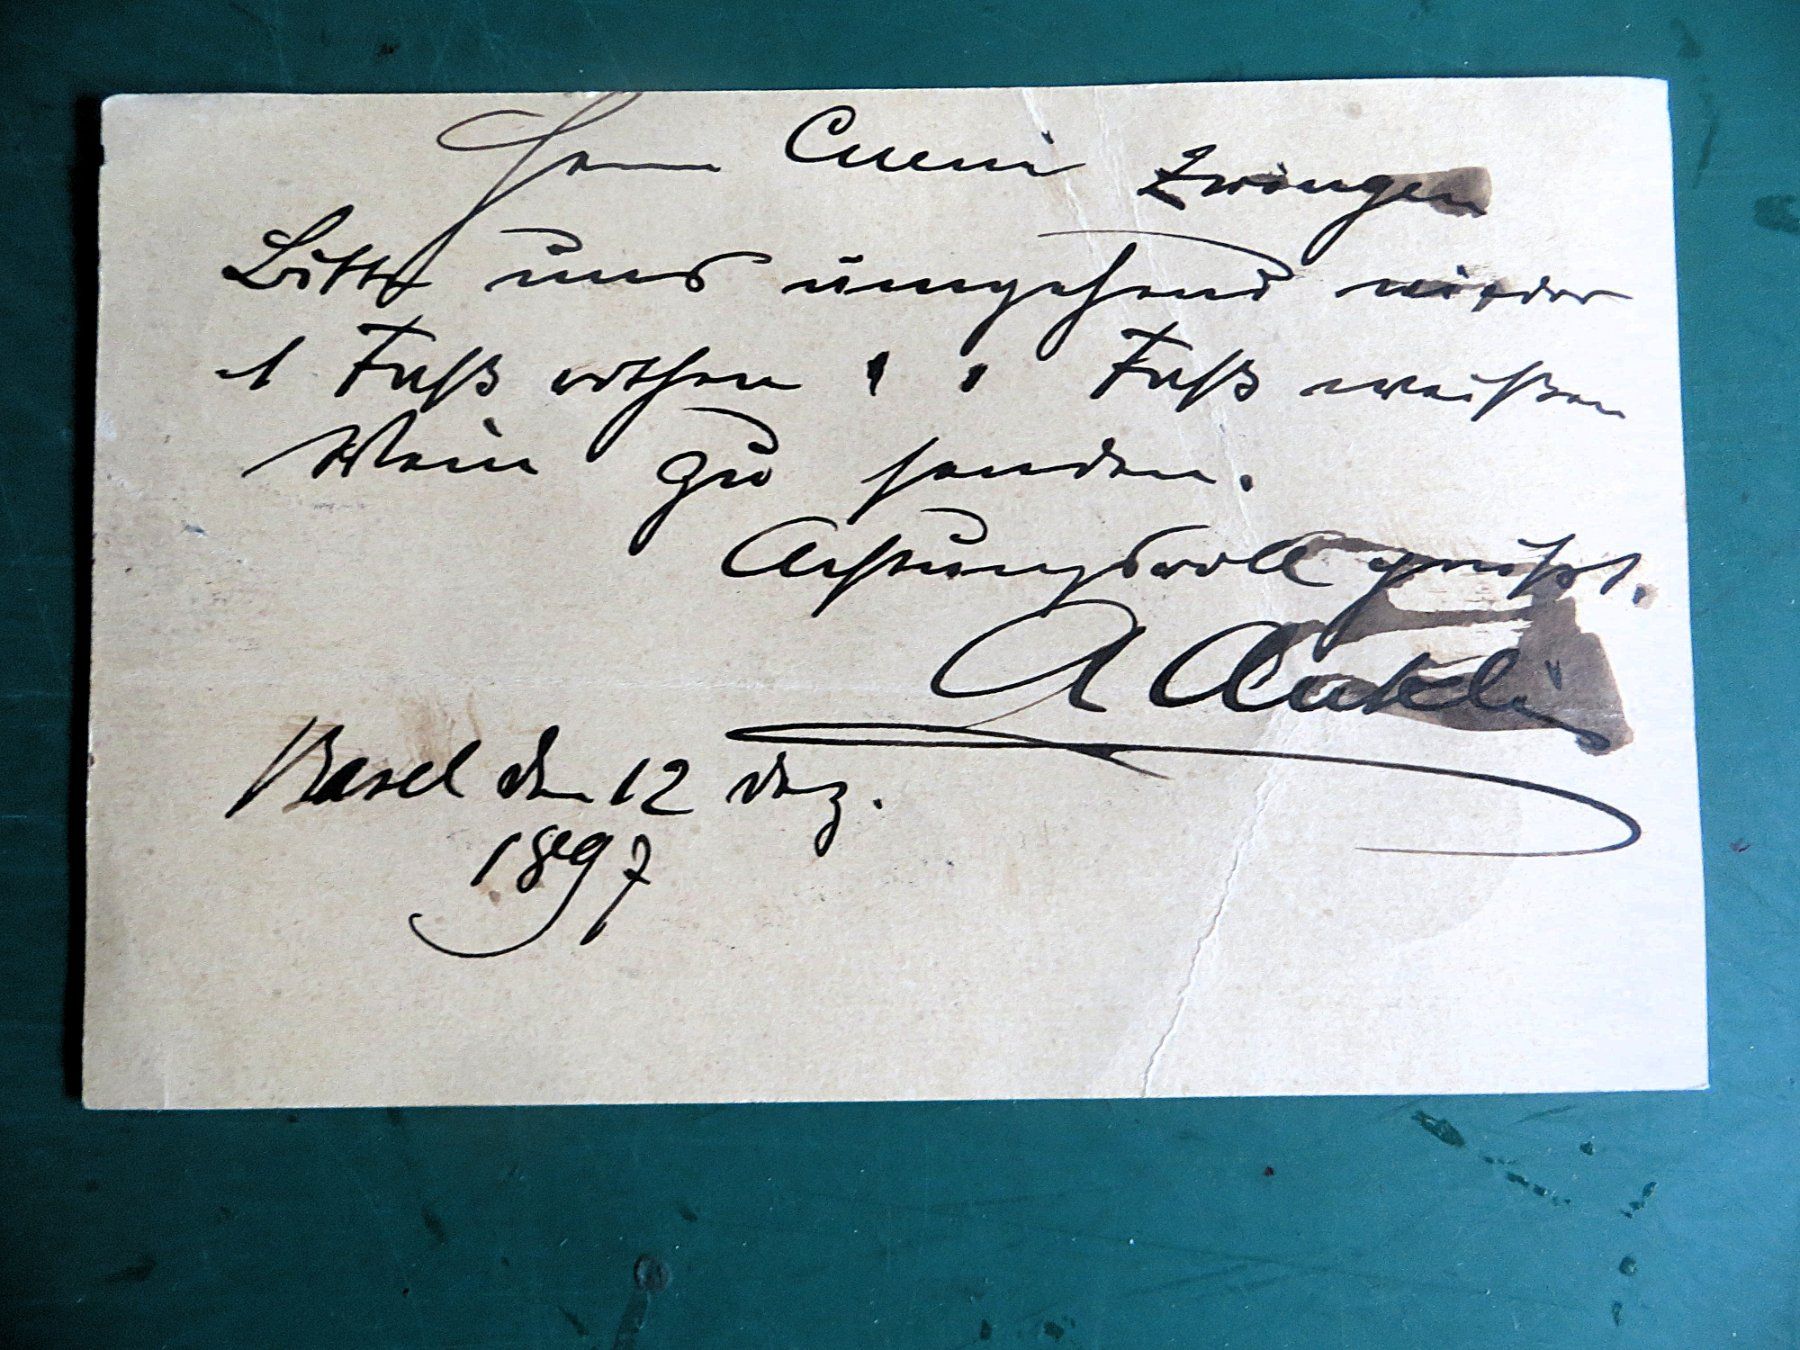 Herrn Cueni Zwingen
Bitte uns umgehend wieder
1 Faß rothen & 1 Faß weißen
Wein zu senden.
Achtungsvoll grüßt.
A
Basel den 12 Dez.
1897